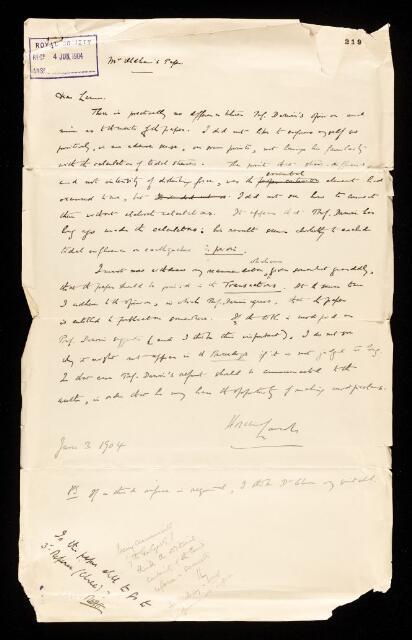 ROYAL SOCIETY
4 JUN. 1904
219
Mr Oldham's Paper
Dear Larmor,
There is practically no difference between Prof. Darwin's opinion and
mine as to the merits of the paper. I did not like to express myself so
positively, in an adverse sense, on some points, not having his familiarity
with the calculation of tidal stresses. The point that stress-difference
and not intensity of disturbing force, was the essential element had
occurred to me, but I did not see how to correct
this without elaborate calculations. It appears that Prof. Darwin has
long ago made the calculations; his result seems absolutely to exclude
tidal influence on earthquakes
I must now withdraw my recommendation, given somewhat grudgingly,
that the paper should be printed in the Transactions. At the same time
I adhere to the opinion, in which Prof. Darwin agrees, that the paper
is entitled to publication somewhere. If the title is modified as
Prof. Darwin suggests (and I think this important), I do not see
why it might not appear in the Proceedings if it is not judged too long.
In any case Prof. Darwin's report should be communicated to the
author, in order that he may have the opportunity of making modifications.
Horace Lamb
June 3. 1904
PS. If a third referee is required, I think Dr
Is this paper still to go to
3rd Referee (Chree)?